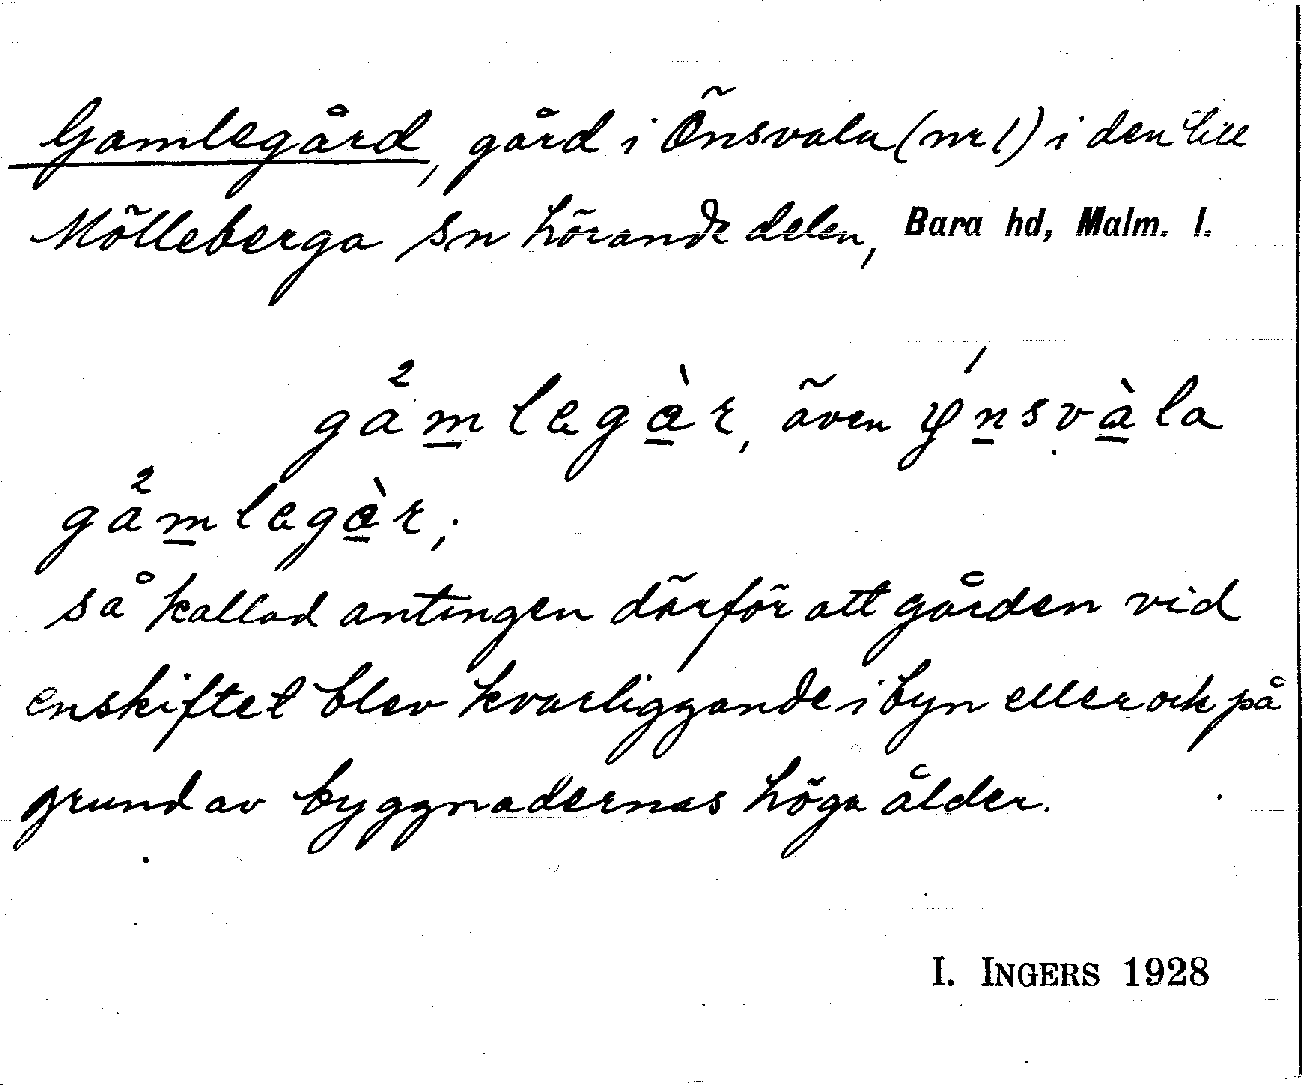 Gamlegård, gård i Önsvala (nr 1) i den till
Mölleberga sn hörande delen, Bara hd, Malm. l.
ga²m̲legà̲r, även ýn̲svà̲la
ga²m̲legà̲r;
så kallad antingen därför att gården vid
enskiftet blev kvarliggande i byn eller ock på
grund av byggnadernas höga ålder.
I. INGERS 1928